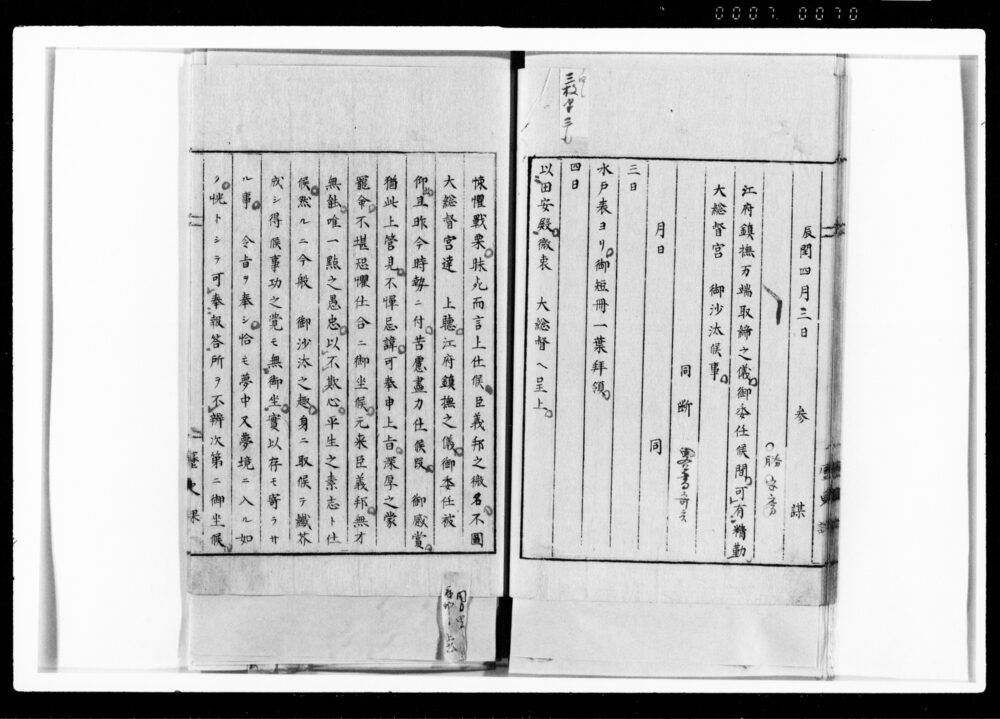 0007 0070
辰閏四月三日
参謀
江府鎮撫万端取締之儀御委任候間可有精勤
大総督宮 御沙汰候事
同断
月日 同
三日
水戸表ヨリ御短冊一葉拝領
四日
以田安殿微衷 大総督ヘ呈上
悚懼戦栗昧死而言上仕候臣義邦之微名不圖
大総督宮達 上聴江府鎮撫之儀御委任被
仰且昨今時勢ニ付苦慮盡力仕候段 御感賞
猶此上管見不憚忌諱可奉申上旨深厚之蒙
寵命不堪恐懼仕合ニ御坐候元来臣義邦無才
無能唯一點之愚忠以不欺心平生之素志ト仕
候然ルニ今般 御沙汰之趣身ニ取候テ纎芥
成シ得候事功之覚モ無御坐實以存モ寄ラサ
ル事 令旨ヲ奉シ恰モ夢中又夢境ニ入ル如
ク恍トシテ可奉報答所ヲ不辨次第ニ御坐候